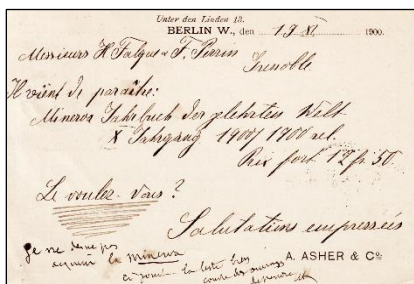 Unter den Linden 13.
BERLIN W., den 19 XI 1900.
Messieurs H. Falque & F. Perrin
Grenoble
Il vient de paraître:
Minerva Jahrbuch der gelehrten Welt
X Jahrgang 1900/ rel.
Prix fort 12 fr 50.
Le voulez-vous?
Salutations empressées
A. ASHER & Co.
Je ne
acquérir la Minerva
ci-joint la liste très
des ouvrages